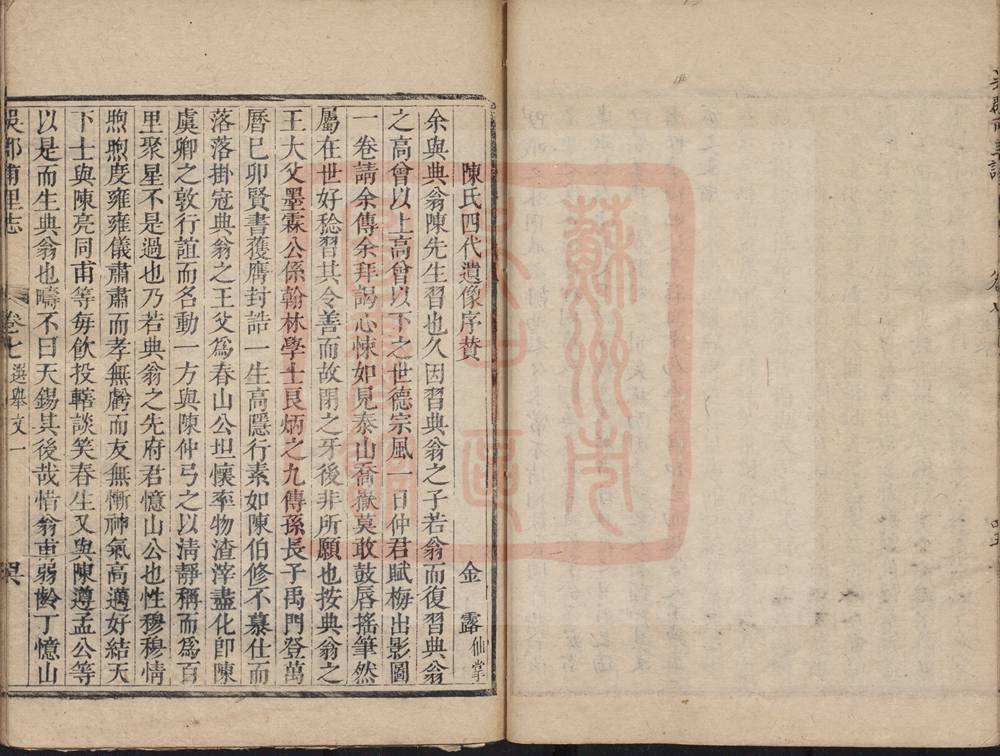 陳氏四代遺像序贊
金露仙掌
余與典翁陳先生習也久因習典翁之子若翁而復習典翁
之高曾以上高曾以下之世德宗風一日仲君賦梅出影圖
一卷請余傳余拜謁心悚如見泰山喬嶽莫敢鼓唇搖筆然
屬在世好稔習其令善而故閉之牙後非所願也按典翁之
王大父墨霖公係翰林學士艮炳之九傳孫長子禹門登萬
曆己卯賢書獲膺封誥一生高隱行素如陳伯修不慕仕而
落落掛冠典翁之王父為春山公坦懷率物渣滓盡化即陳
虞卿之敦行誼而名動一方與陳仲弓之以清靜稱而為百
里聚星不是過也乃若典翁之先府君憶山公也性穆穆情
煦煦度雍雍儀肅肅而孝無虧而友無慚神氣高邁好結天
下士與陳亮同甫等每飲投轄談笑春生又與陳遵孟公等
以是而生典翁也疇不曰天錫其後哉惜翁甫弱齡丁憶山
吳郡甫里志
卷七
選舉文一
蘇州市吳中區圖書館